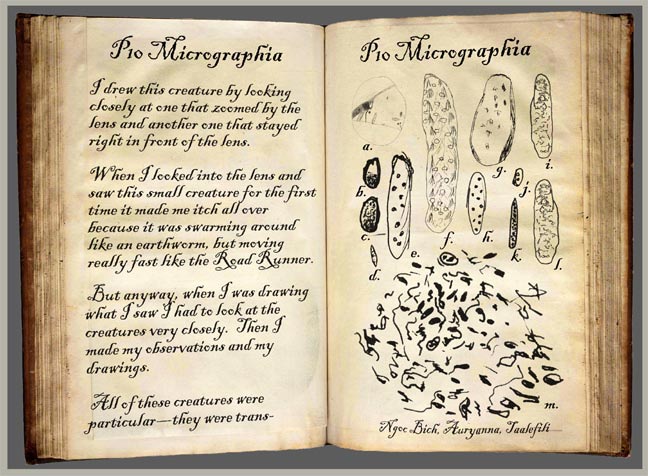 Pio Micrographia
I drew this creature by looking
closely at one that zoomed by the
lens and another one that stayed
right in front of the lens.
When I looked into the lens and
saw this small creature for the first
time it made me itch all over
because it was swarming around
like an earthworm, but moving
really fast like the Road Runner.
But anyway, when I was drawing
what I saw I had to look at the
creatures very closely. Then I
made my observations and my
drawings.
All of these creatures were
particular—they were trans-
Pio Micrographia
a.
b.
c.
d.
e.
f.
g.
h.
i.
j.
k.
l.
m.
Ngoc Bich, Auryanna, Taalefili